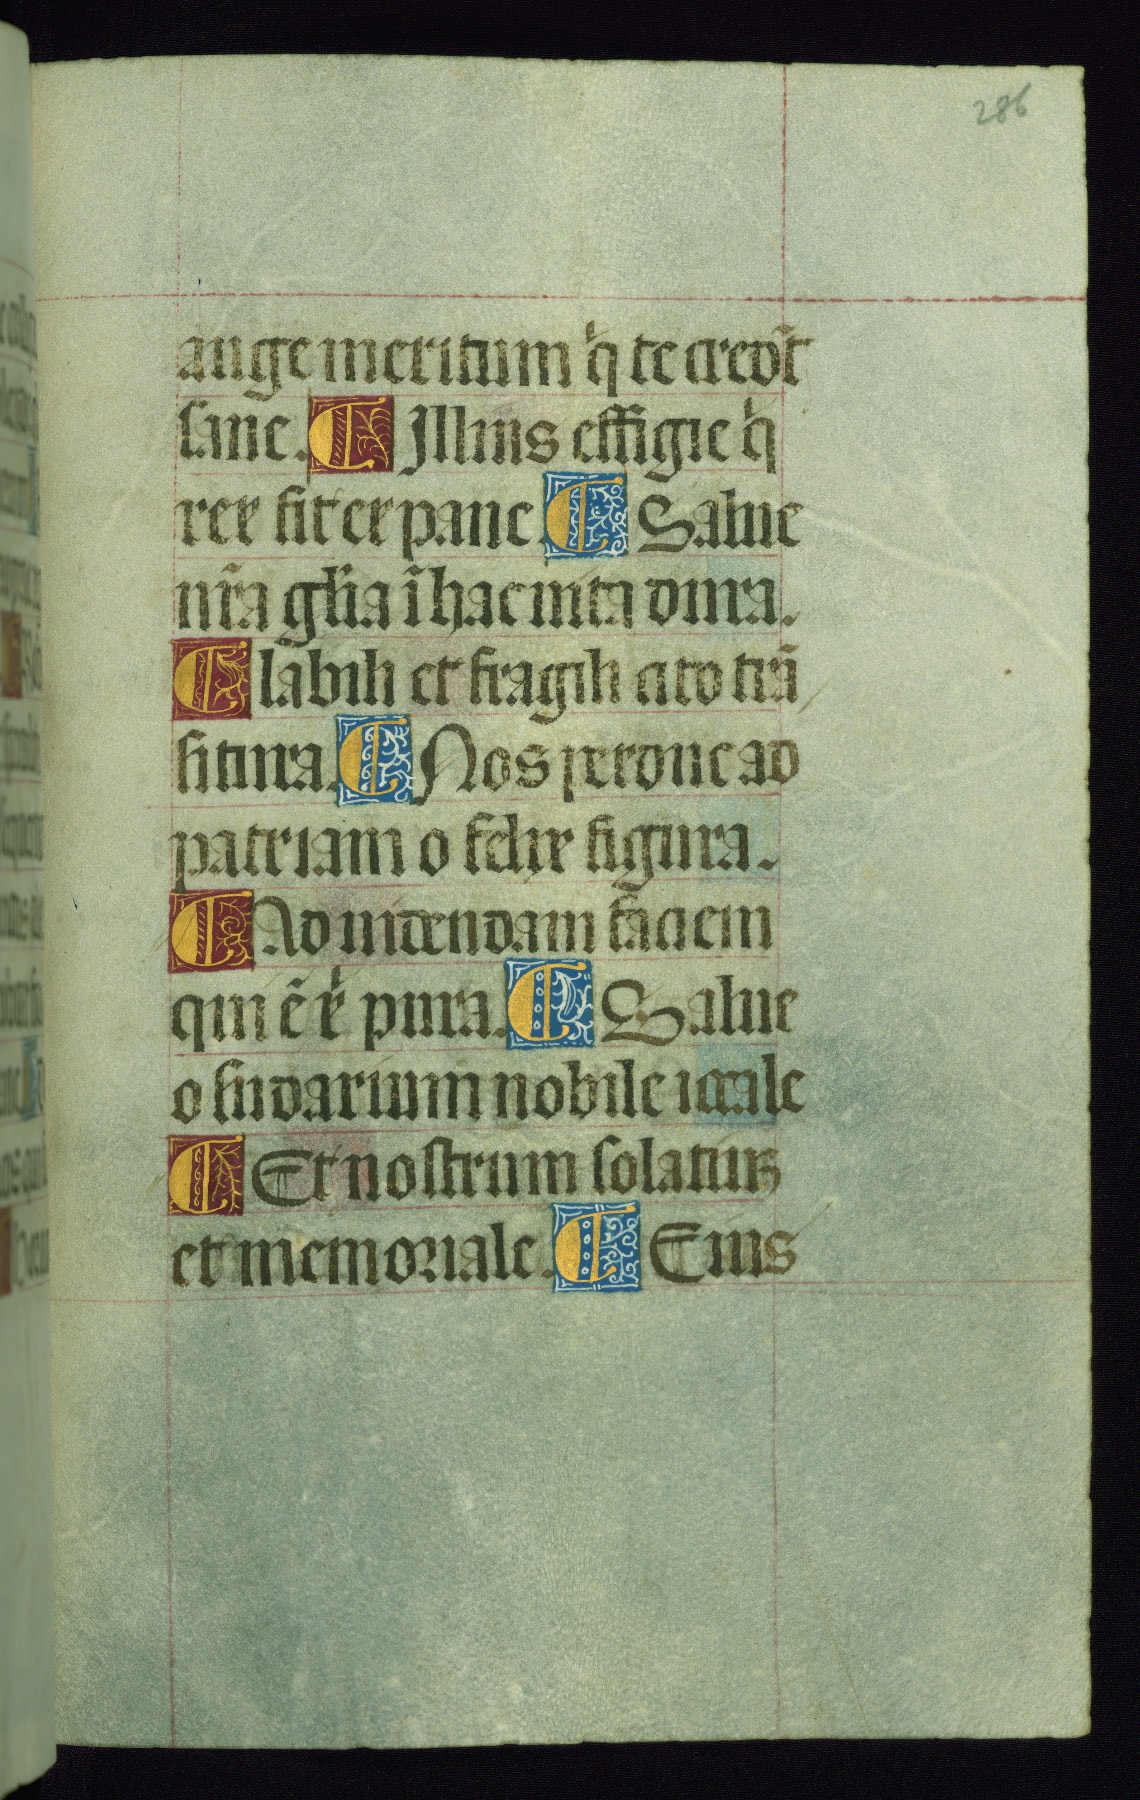 286
auge meritum hͥ q te credũt
sane. ¶ Illius effigie hͥ q
rex fit ex pane ¶ Salue
nr̃a gl̃ia ĩ hac uita dura.
¶ labili et fragili cito trã
situra. ¶ Nos perduc ad
patriam o felix figura.
¶ Ad uidendam faciem
qui ẽ xͥ pura. ¶ Salue
o sudarium nobile iocale
¶ Et nostrum solatiuꝫ
et memoriale. ¶ Eius